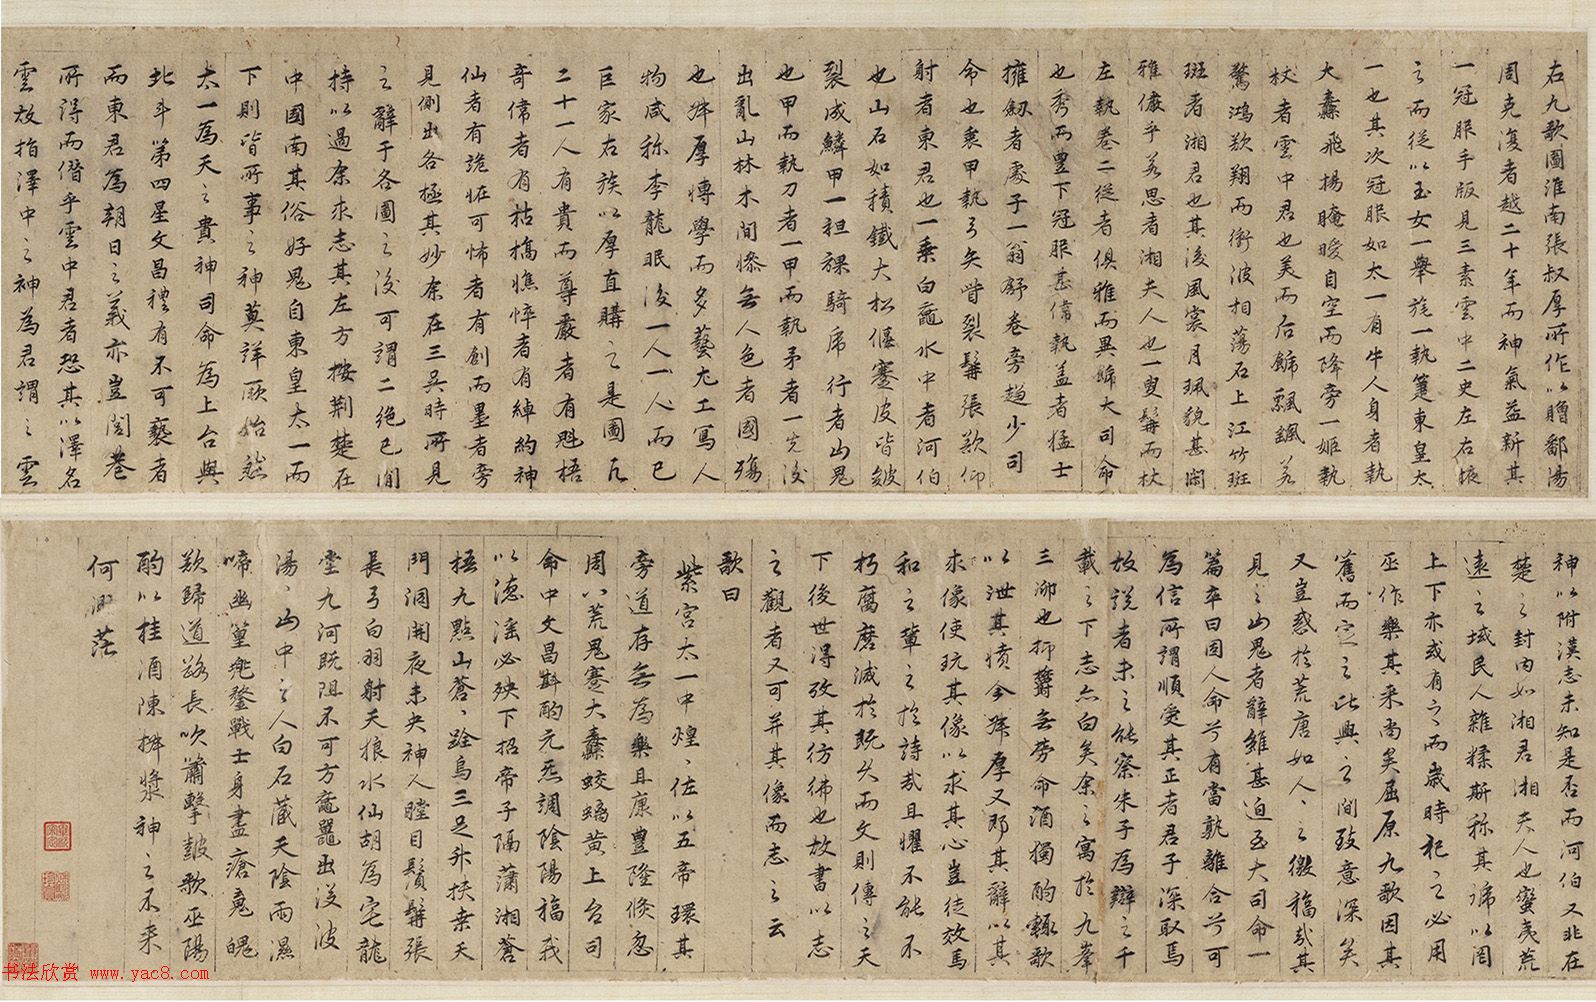 右九歌圖淮南張叔厚所作以贈鄱陽
周克復者越二十年而神氣益新其
一冠服手版見三素雲中二史左右掖
之而從以玉女一舉旄一執篁東皇太
一也其次冠服如太一有牛人身者執
大纛飛揚晻曖自空而降旁一姬執
杖者雲中君也美而后飾飄飄若
驚鴻欻翔而衝波相蕩石上江竹斑
斑者湘君也其後風裳月珮貌甚閑
雅儼乎若思者湘夫人也一叟髯而杖
左執卷二從者俱雅而異飾大司命
也秀而豊下冠服甚偉執蓋者猛士
擁劔者處子一翁舒卷旁趨少司
命也衷甲執弓矢眥裂髯張欻仰
射者東君也一乘白黿水中者河伯
也山石如積鐵大松偃蹇皮皆皴
裂成鱗甲一袒裸騎席行者山鬼
也甲而執刀者一甲而執矛者一先後
出亂山林木間慘無人色者國殤
也叔厚博學而多藝尤工寫人
物咸称李龍眠後一人一人而已
巨家右族以厚直購之是圖凡
二十一人有貴而尊嚴者有魁梧
竒偉者有枯槁憔悴者有綽約神
仙者有詭恠可怖者有創而墨者旁
見側出各極其妙余在三吳時所見
之辭于各圖之後可謂二絶已閒
持以過余求志其左方按荆楚在
中國南其俗好鬼自東皇太一而
下則皆所事之神莫詳厥始然
太一為天之貴神司命為上台與
北斗第四星文昌禮有不可褻者
而東君為朝日之義亦豈閭巷
所得而僭乎雲中君者恐其以澤名
雲故指澤中之神為君謂之雲
神以附漢志未知是否而河伯又非在
楚之封内如湘君湘夫人也蠻夷荒
遠之域民人雜糅斯称其號以罔
上下亦或有之而歲時祀之必用
巫作樂其来尚矣屈原九歌因其
舊而定之比興之間致意深矣
又豈惑於荒唐如人人之徼福哉其
見之山鬼者辭雖甚迫至大司命一
篇卒曰固人命兮有當孰離合兮可
為信所謂順受其正者君子深取焉
故説者未之能察朱子為辯之千
載之下志亦白矣余之寓於九峯
三泖也抑欝無旁命酒獨酌輒歌
以泄其憤今叔厚又即其辭以其
求像使玩其像以求其心豈徒效馬
和之輩之於詩哉且懼不能不
朽腐磨滅於既久而文則傳之天
下後世得攷其彷彿也故書以志
之觀者又可并其像而志之云
歌曰
紫宮太一中煌煌佐以五帝環其
旁道存無為樂且康豊隆倏忽
周八荒鬼蹇大纛蛟螭黄上台司
命中文昌斟酌元炁調陰陽福我
以德滛必殃下招帝子隔瀟湘蒼
梧九點山蒼蒼跧烏三足升扶桒天
門洞開夜未央神人瞠目鬚髯張
長弓白羽射天狼水仙胡為宅龍
堂九河既阻不可方黿鼉出没波
湯湯山中之人白石藏天陰雨濕
啼幽篁兜鍪戰士身盡瘡䰟魄
欻歸道路長吹簫擊鼓歌巫陽
酌以桂酒陳椒漿神之不来
何渺茫
书法欣赏 www.yac8.com